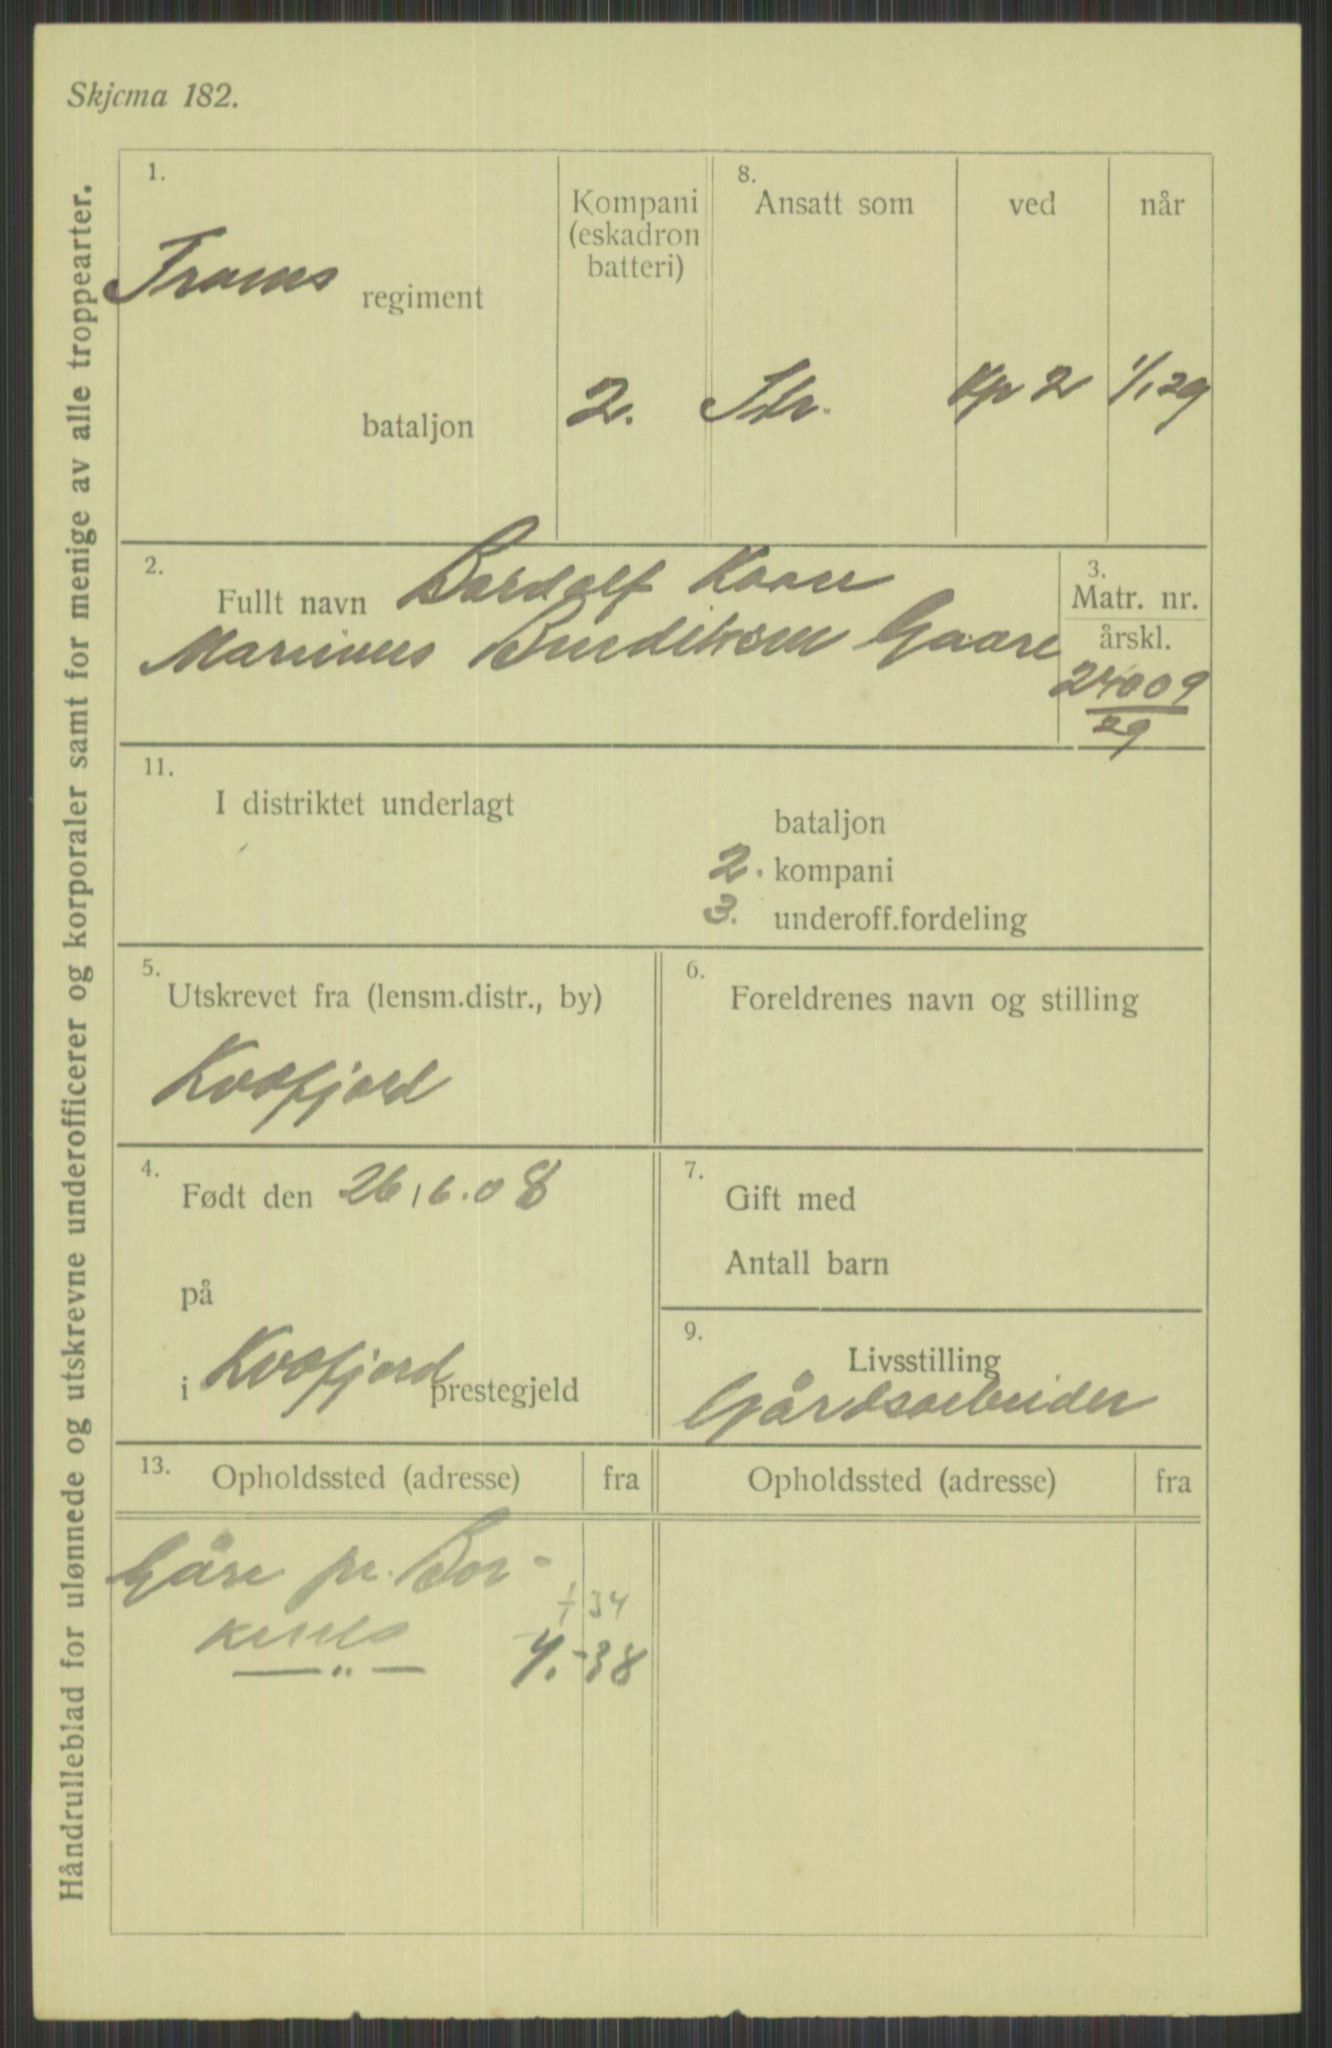 Skjema 182.
Håndrulleblad for ulønnede og utskrevne underofficerer og korporaler samt for menige av alle troppearter.
1.
Troms regiment
bataljon
Kompani
(eskadron
batteri)
2.
8.
Ansatt som
ved
når
Kp 2
1/1 29
2.
Fullt navn Bardolf Kaare
Marinus Benediksen Gaare
3.
Matr. nr.
årskl.
24009
29
11.
I distriktet underlagt
bataljon
2. kompani
3. underoff.fordeling
5.
Utskrevet fra (lensm.distr., by)
Kvæfjord
6.
Foreldrenes navn og stilling
4.
Født den 26/6.08
på
i Kvæfjord prestegjeld
7.
Gift med
Antall barn
9.
Livsstilling
Gårdsarbeider
13.
Opholdssted (adresse)
fra
Opholdssted (adresse)
fra
Gåre pr. Bor-
kenes
34
— " —
4.-38